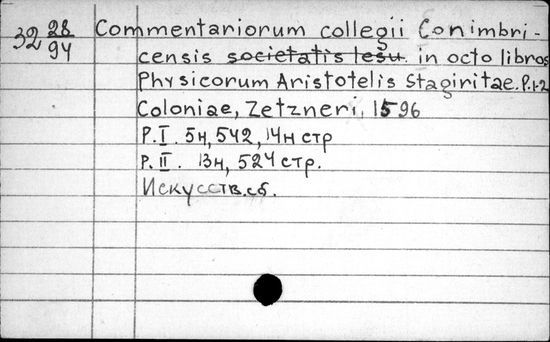 32 28/94 Commentariorum collegii Conimbri-
censis societatis Iesu in octo libros
Physicorum Aristotelis Stagiritae. P. 1-2
Coloniae, Zetzneri, 1596
P. I. 5н, 542, 14н стр
P. II. 13н, 524 стр.
Искусств. сб.